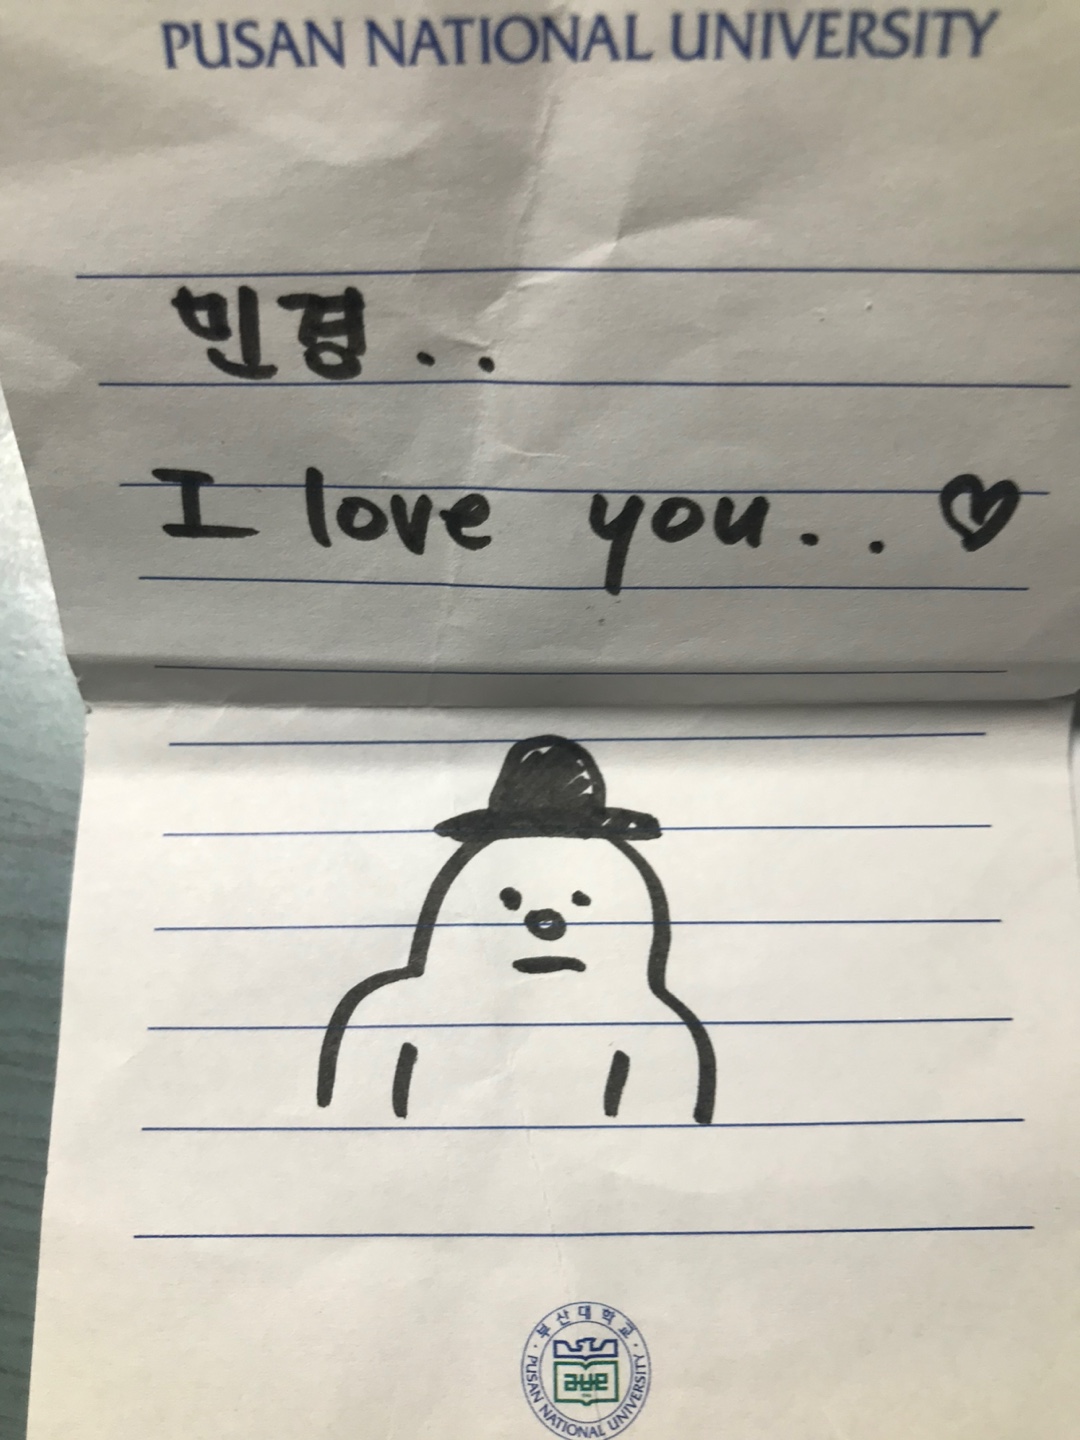 PUSAN NATIONAL UNIVERSITY
민경..
I love you.. ♡
부산대학교
PUSAN NATIONAL UNIVERSITY